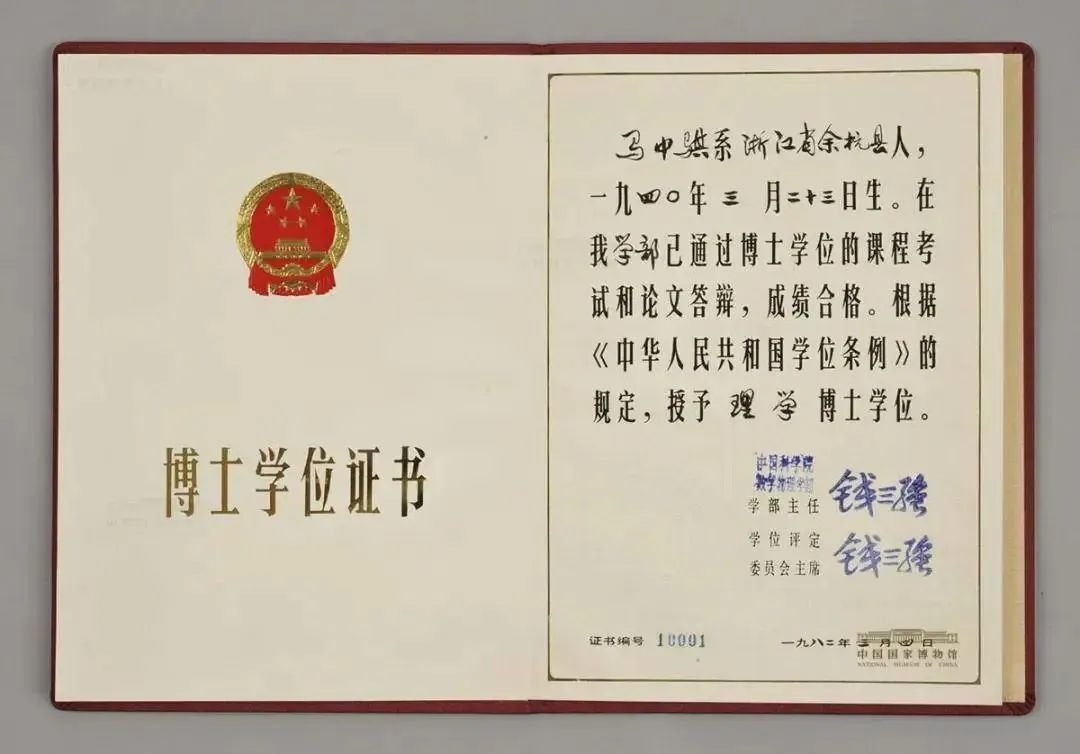 博士学位证书
马中骐系浙江省余杭县人，
一九四〇年三月二十三日生。在
我学部已通过博士学位的课程考
试和论文答辩，成绩合格。根据
《中华人民共和国学位条例》的
规定，授予理学博士学位。
中国科学院
数学物理学部
学部主任 钱三强
学位评定
委员会主席 钱三强
证书编号 10001 一九八二年三月四日
中国国家博物馆
NATIONAL MUSEUM OF CHINA